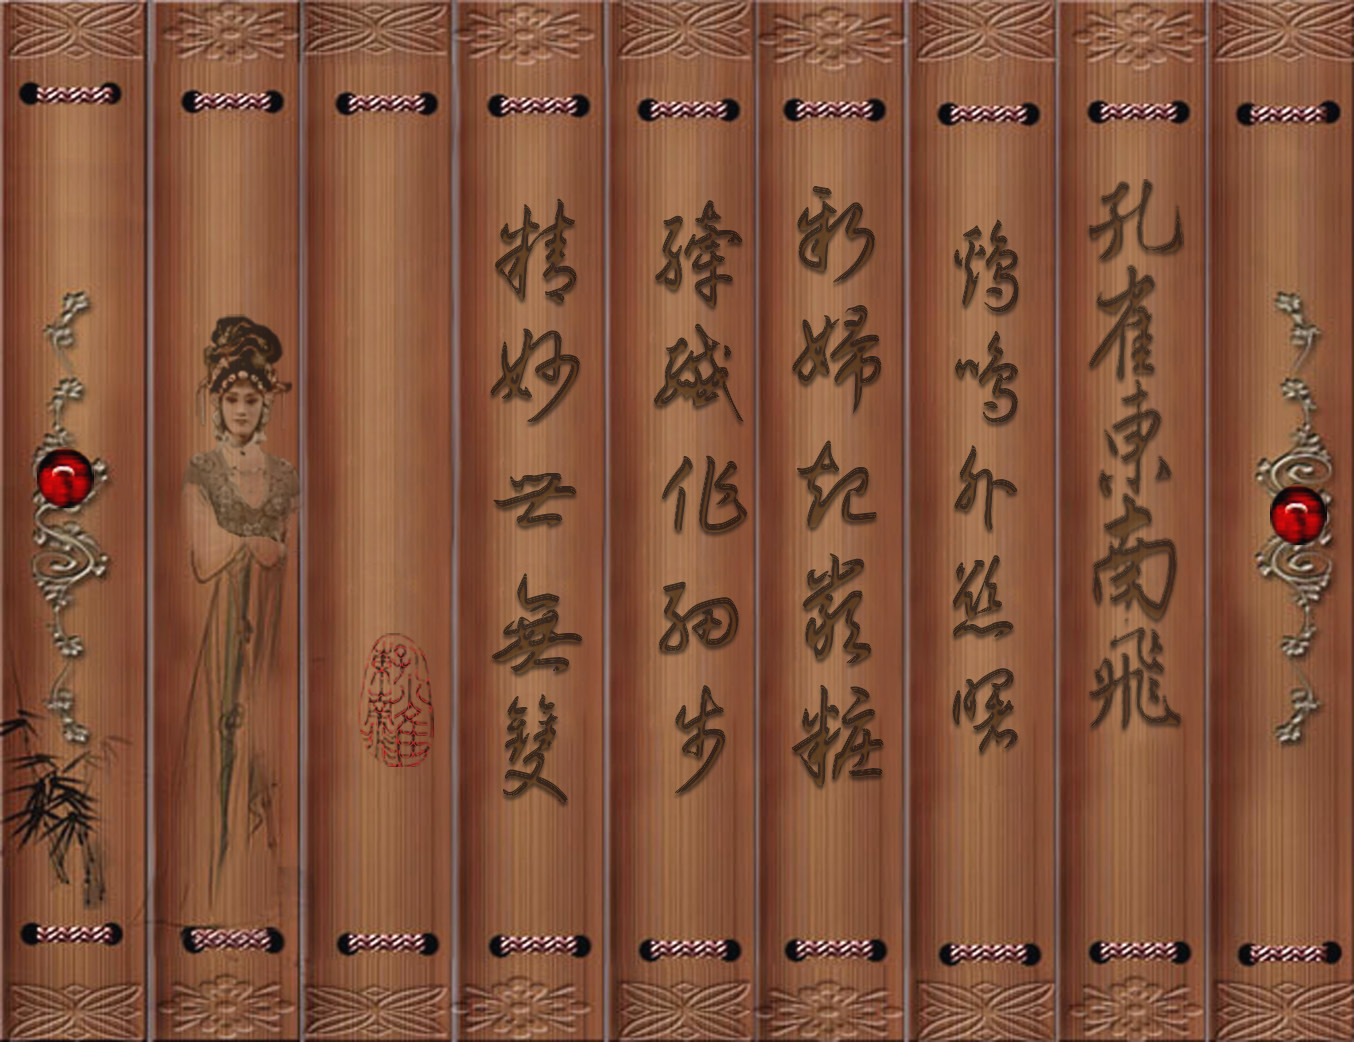 孔雀東南飛
鷄鳴外慾曙
新婦起嚴粧
縴纖作細步
精妙世無雙